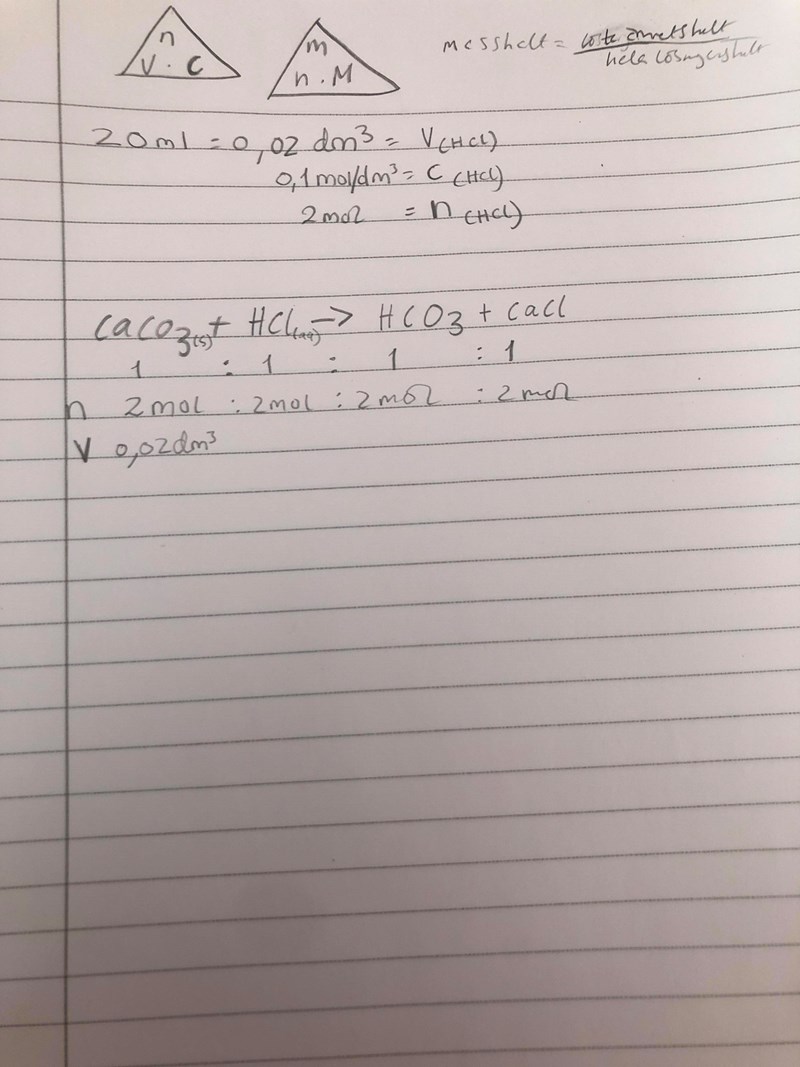 n
V · C
m
n · M
messhelt = 
hela lösningens helt
20ml = 0,02 dm³ = V(HCl)
0,1mol/dm³ = C (HCl)
2mol = n (HCl)
CaCO₃(s) + HCl(aq) → HCO₃ + CaCl
1 : 1 : 1 : 1
n 2mol : 2mol : 2mol : 2mol
V 0,02dm³